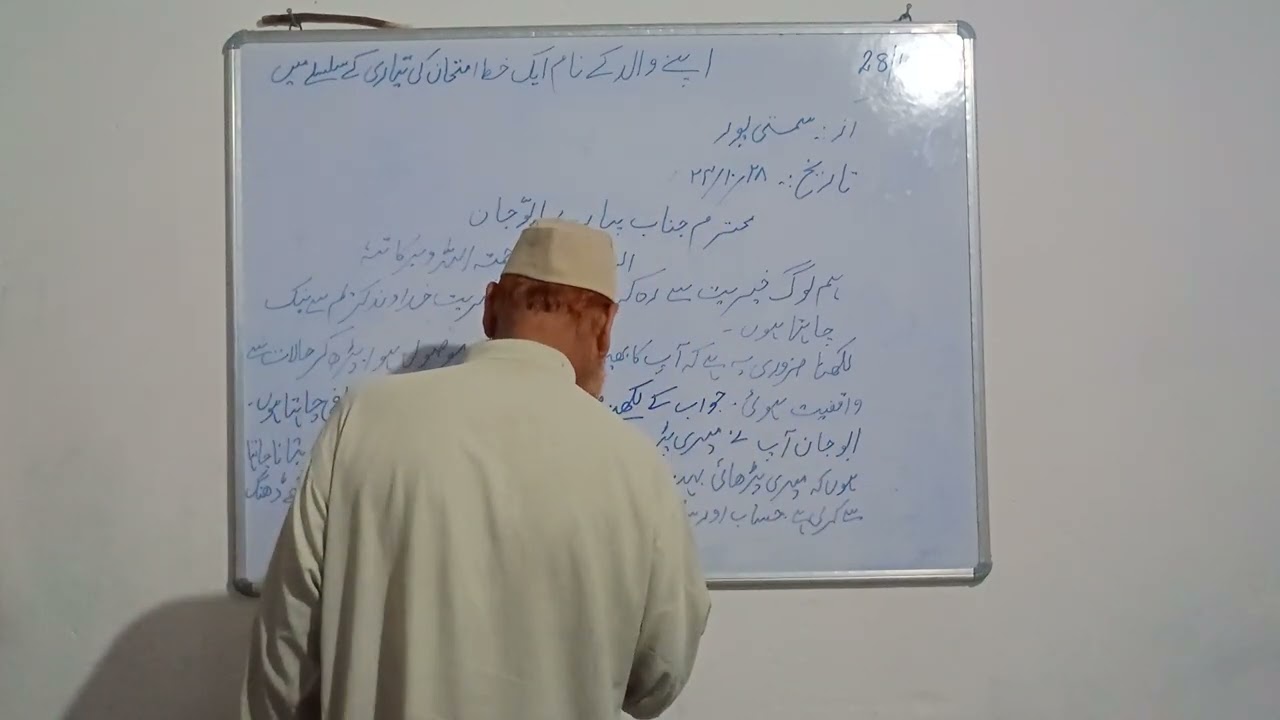 28/1
اپنے والد کے نام ایک خط امتحان کی تیاری کے سلسلے میں
از :۔ سمستی پور
تاریخ :۔ ۲۸/۱۰/۲۳
محترم جناب پیارے ابّو جان
اللہ و برکاتہ
ہم لوگ خیریت سے رہ کر خیریت خداوند کریم سے نیک
چاہتا ہوں ۔
لکھنا ضروری یہ ہے کہ آپ کا موصول ہوا ، پڑھ کر حالات سے
واقفیت ہوئی ۔ جواب کے لکھنے چاہتا ہوں ۔
ابو جان آپ نے میری بتانا چاہتا
ہوں کہ میری پڑھائی بہت ڈھنگ
سے کرلی ہے حساب اور